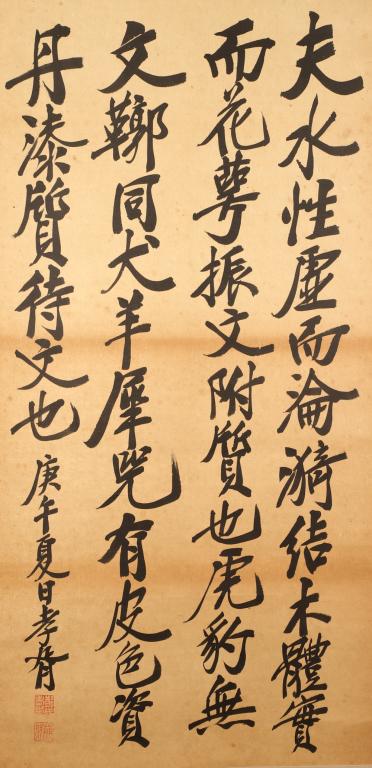 夫水性虛而淪漪結木體實
而花萼振文附質也虎豹無
文鞹同犬羊犀兕有皮色資
丹漆質待文也
庚午夏日孝胥